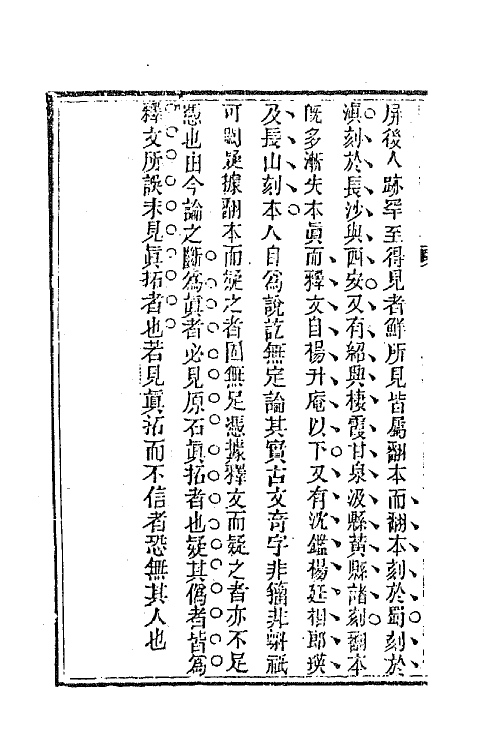 屏後人跡罕至得見者鮮所見皆屬翻本而翻本刻於蜀刻於
滇刻於長沙與西安又有紹興棲霞甘泉汲縣黃縣諸刻翻本
旣多漸失本眞而釋文自楊升庵以下又有沈鑑楊廷相郎瑛
及長山刻本人自爲說訖無定論其實古文奇字非籀非斯祇
可闕疑據翻本而疑之者固無足憑據釋文而疑之者亦不足
憑也由今論之斷爲眞者必見原石眞拓者也疑其僞者皆爲
釋文所誤未見眞拓者也若見眞拓而不信者恐無其人也